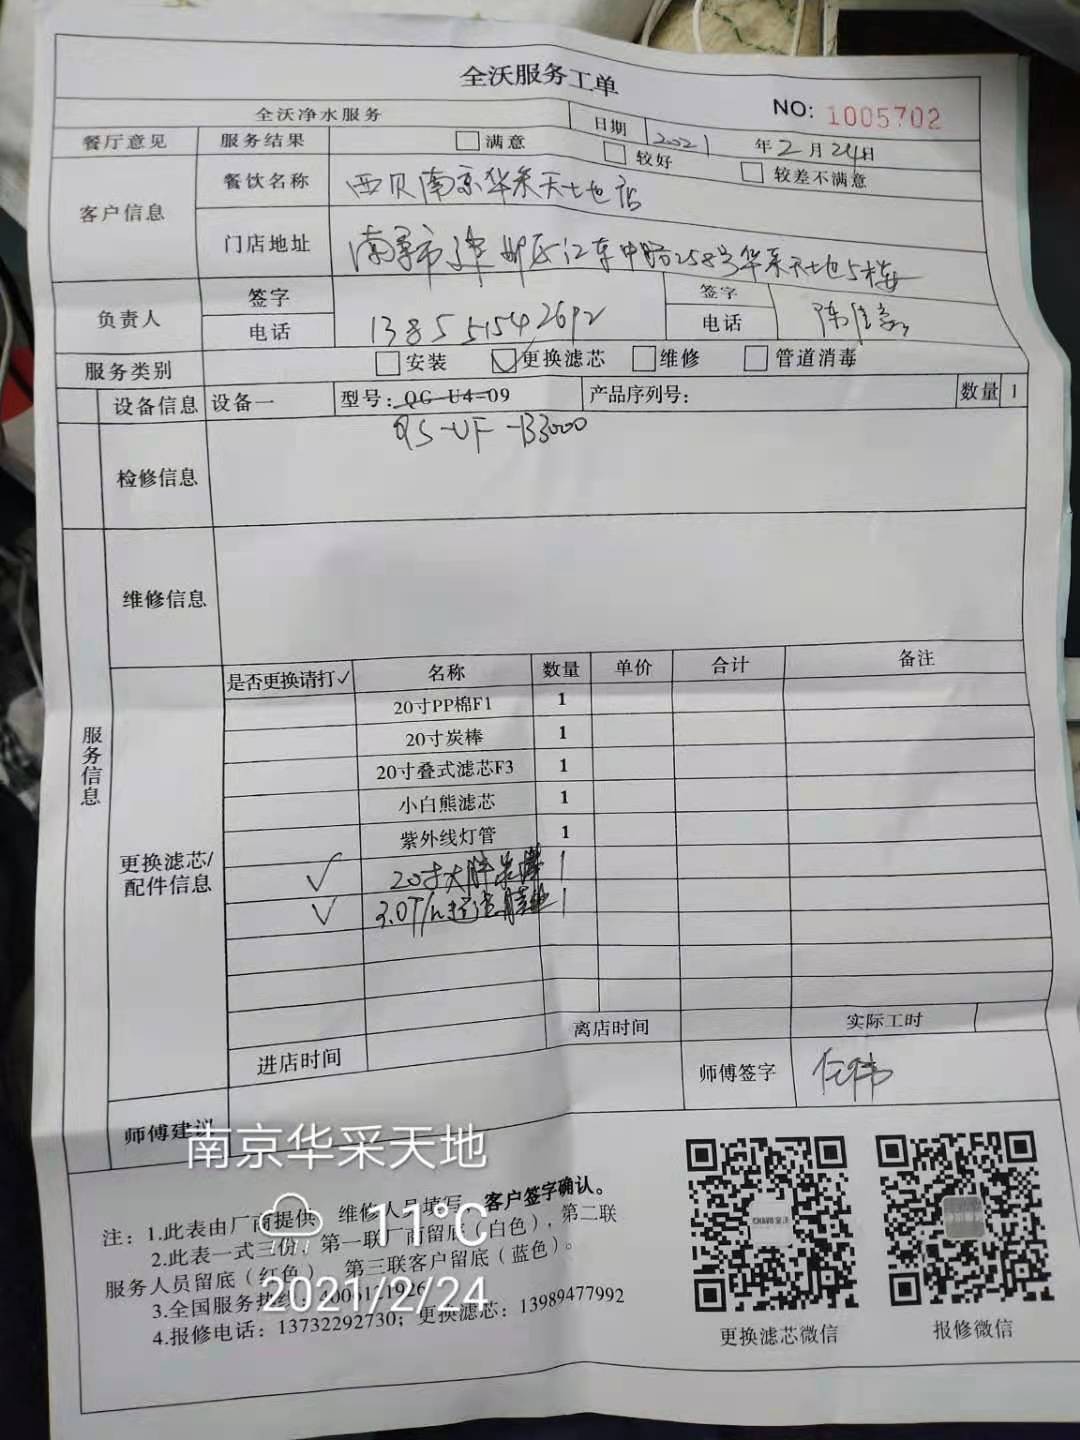 全沃服务工单
NO: 1005702
全沃净水服务 日期 2021年2月24日
餐厅意见 服务结果 满意 较好 较差不满意
客户信息 餐饮名称 西贝南京华采天地店
门店地址 南京市建邺区江东中路258号华采天地5楼
负责人 签字 签字
电话 138551542692 电话
服务类别 安装 更换滤芯 维修 管道消毒
设备信息 设备一 型号: QG-U4-09 产品序列号: 数量 1
QS-UF-B3000
检修信息
维修信息
服务信息
更换滤芯/配件信息
是否更换请打✓ 名称 数量 单价 合计 备注
20寸PP棉F1 1
20寸炭棒 1
20寸叠式滤芯F3 1
小白熊滤芯 1
紫外线灯管 1
✓ 20寸大胖炭棒 1
✓ 3.0T/h 1
进店时间 离店时间 实际工时
师傅签字 任伟
师傅建议
南京华采天地
11°C
2021/2/24
注: 1.此表由厂商提供 维修人员填写 客户签字确认。
2.此表一式三份, 第一联厂商留底(白色), 第二联
服务人员留底(红色) 第三联客户留底(蓝色)。
3.全国服务热线
4.报修电话: 13732292730; 更换滤芯: 13989477992
更换滤芯微信
报修微信